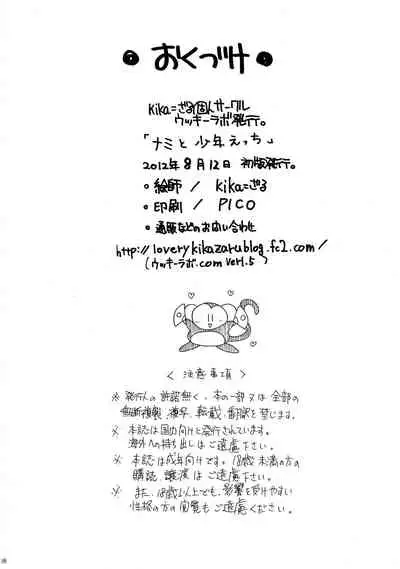 おくづけ
kika=ざる個人サークル
ウッキーラボ発行。
「ナミと少年えっち」
2012年8月12日 初版発行。
・絵師 / kika=ざる
・印刷 / PICO
・通販などのお問い合わせ
http://loverykikazarublog.fc2.com/
(ウッキーラボ.com ver1.5)
〈 注意事項 〉
※ 発行人の許諾無く、本の一部又は全部の
無断複製、複写、転載、翻訳を禁じます。
※ 本誌は国内向けと発行されています。
海外への持ち出しはご遠慮下さい。
※ 本誌は成年向けです。18歳未満の方の
購読、譲渡はご遠慮下さい。
※ また、18歳以上でも、影響を受けやすい
性格の方の閲覧もご遠慮ください。